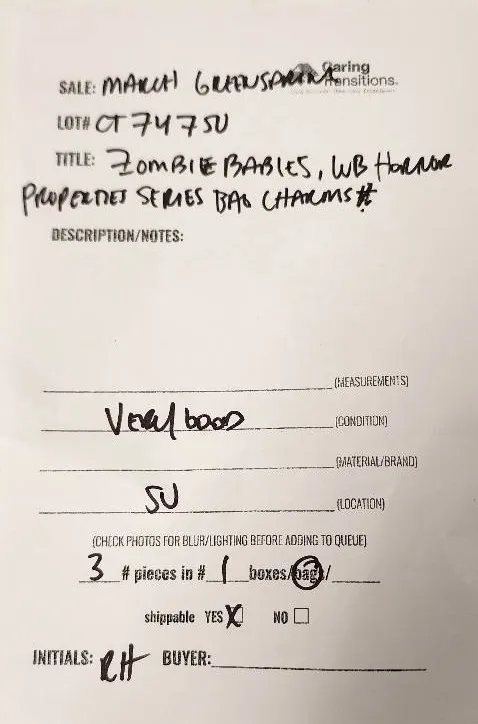 Caring
Transitions.
SALE: MARCH GREENSPRING
LOT# CT747SU
TITLE: ZOMBIE BABIES, WB HORROR
PROPERTIES SERIES BAG CHARMS #
DESCRIPTION/NOTES:
(MEASUREMENTS)
VERY GOOD (CONDITION)
(MATERIAL/BRAND)
SU (LOCATION)
(CHECK PHOTOS FOR BLUR/LIGHTING BEFORE ADDING TO QUEUE)
3 # pieces in # 1 boxes/bags/
shippable YES X NO
INITIALS: RH BUYER: